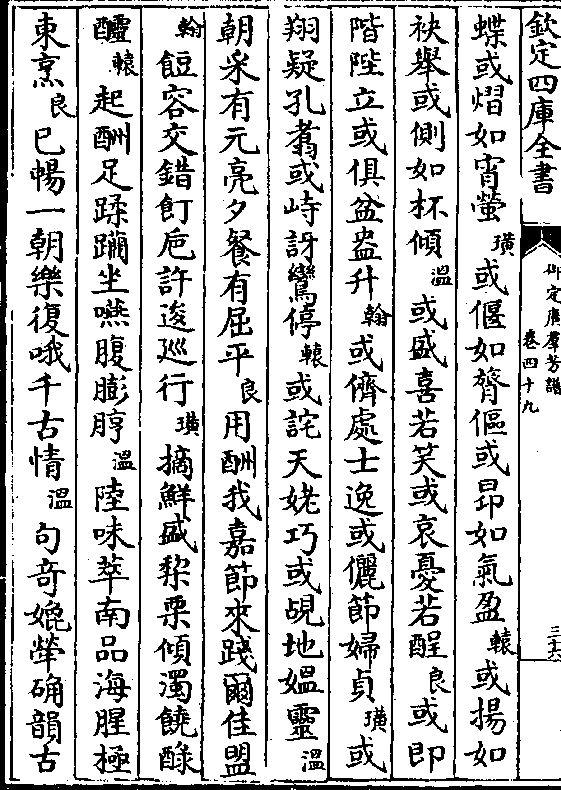 欽定四庫全書
御定廣羣芳譜
卷四十九
三十六
蝶或熠如宵螢璜或偃如膂傴或昂如氣盈轅或揚如
袂舉或側如杯傾溫或盛喜若笑或哀憂若酲良或即
階陛立或俱盆盎升翰或儕處士逸或儷節婦貞璜或
翔疑孔翥或峙訝鸞停轅或詫天姥巧或覘地媼靈溫
朝采有元亮夕餐有屈平良用酬我嘉節來踐爾佳盟
翰餖容交錯飣巵許逡巡行璜摘鮮盛棃栗傾濁饒醁
醽轅起酬足蹂躪坐嚥腹膨脝溫陸味萃南品海腥極
東烹良已暢一朝樂復哦千古情溫句奇媲犖确韻古